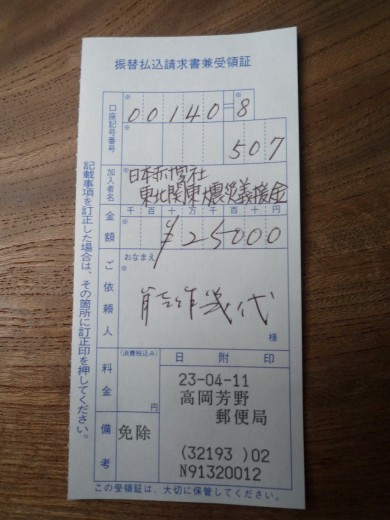 振替払込請求書兼受領証
口座記号番号
※ 00140=8 ※
507
加入者名
日本赤十字社
東北関東大震災義援金
金額
千 百 十 万 千 百 十 円
※ ¥25000
ご依頼人
おなまえ※
能作幾代
様
料金
(消費税込み)
円
日附印
23-04-11
高岡芳野
郵便局
(32193 )02
N91320012
備考
免除
記載事項を訂正した場合は、その箇所に訂正印を押してください。
この受領証は、大切に保管してください。